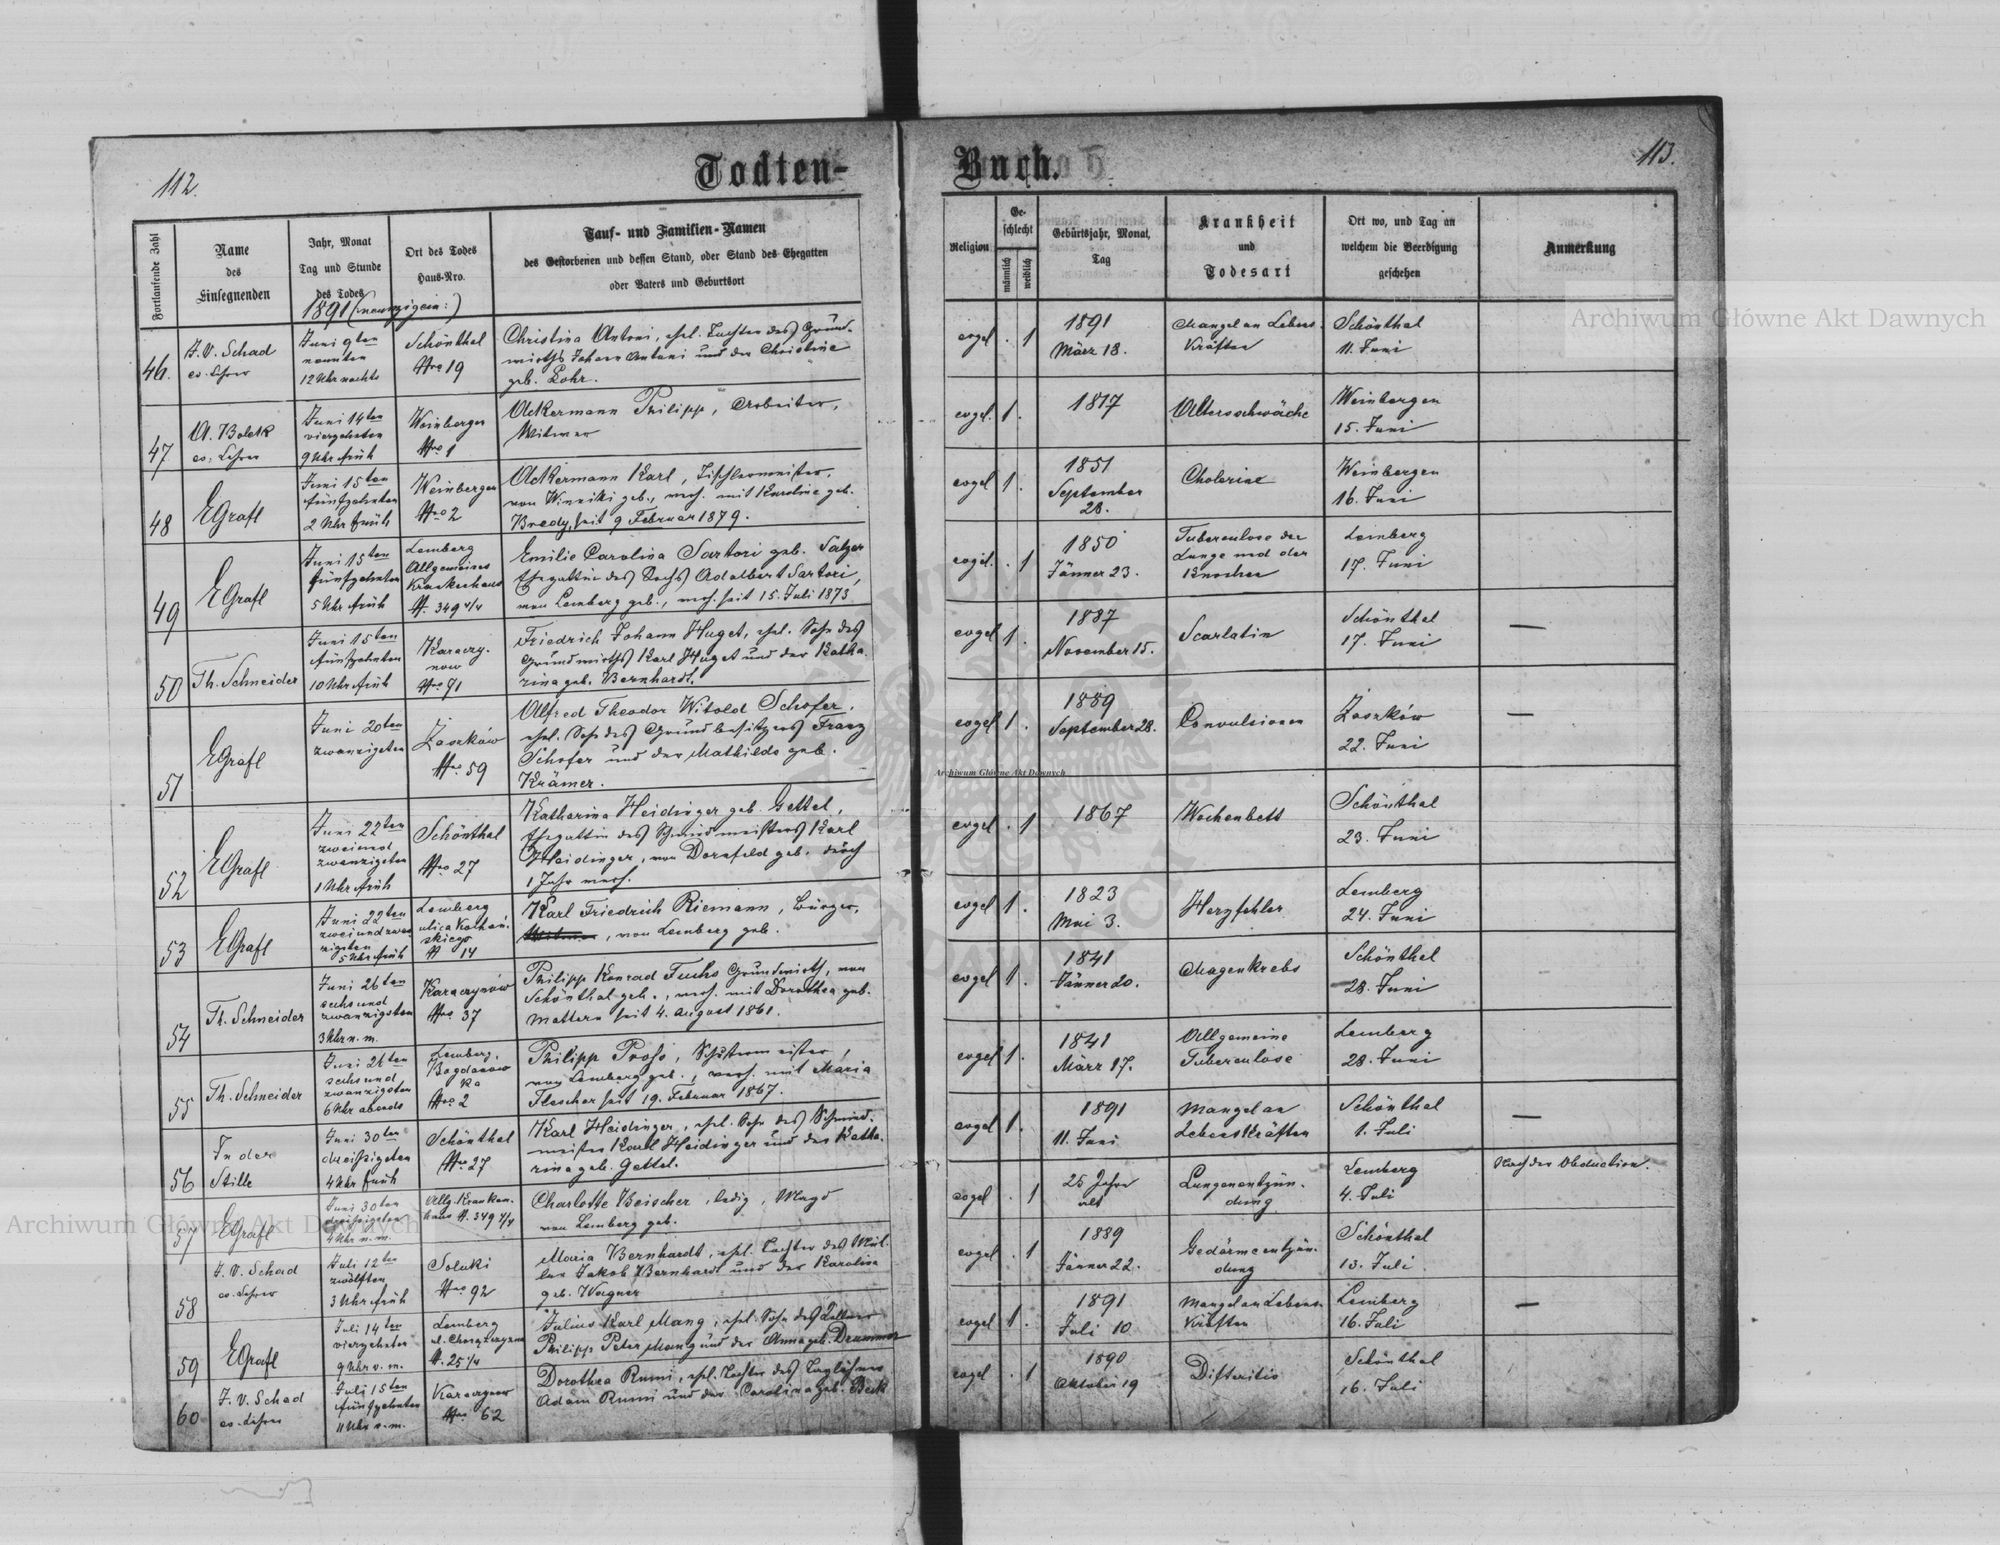 112.
Todten-
Fortlaufende Zahl
Name
des
Einsegnenden
Jahr, Monat
Tag und Stunde
des Todes
Ort des Todes
Haus-Nro.
Tauf- und Familien-Namen
des Gestorbenen und dessen Stand, oder Stand des Ehegatten
oder Vaters und Geburtsort
1891
46.
J. V. Schad
ev. Lehrer
Juni 9ten
neunten
12 Uhr nachts
Schönthal
Nro 19
Christina Antoni, ehel. Tochter des Grund-
wirths Johann Antoni und der Christine
geb. Lohr.
47
A. Bolek
ev. Lehrer
Juni 14ten
vierzehnten
9 Uhr früh
Weinbergen
Nro 1
Ackermann Philipp, Arbeiter,
Witwer
48
EGrafl
Juni 15ten
fünfzehnten
2 Uhr früh
Weinbergen
Nro 2
Ackermann Karl, Tischlermeister,
von Winniki geb., verh. mit Karoline geb.
Bredy, seit 9 Februar 1879.
49
EGrafl
Juni 15ten
fünfzehnten
5 Uhr früh
Lemberg
Allgemeines
Krankenhaus
N. 349 4/4
Emilie Carolina Sartori geb. Salzer
Ehegattin des Adalbert Sartori,
von Lemberg geb., verh. seit 15. Juli 1873
50
Th. Schneider
Juni 15ten
fünfzehnten
10 Uhr früh
Karaczy-
now
Nro 71
Friedrich Johann Huget, ehel. Sohn des
Grundwirths Karl Huget und der Katha-
rina geb. Bernhardt.
51
EGrafl
Juni 20ten
zwanzigsten
Zaszków
Nro 59
Alfred Theodor Witold Schofer,
ehel. Sohn des Grundbesitzers Franz
Schofer und der Mathilde geb.
Krämer.
52
EGrafl
Juni 22ten
zweiund
zwanzigsten
1 Uhr früh
Schönthal
Nro 27
Katharina Heidinger geb. Gettel,
Ehegattin des Schmiedmeisters Karl
Heidinger, von Dornfeld geb. durch
1 Jahr verh.
53
EGrafl
Juni 22ten
zweiundzwan
zigsten
5 Uhr früh
Lemberg
ulica
skiego
N 14
Karl Friedrich Riemann, Bürger,
Witwer, von Lemberg geb.
54
Th. Schneider
Juni 26ten
sechsund
zwanzigsten
3 Uhr n. m.
Karaczynów
Nro 37
Philipp Konrad Fuchs Grundwirth, von
Schönthal geb., verh. mit Dorothea geb.
Mattern seit 4. August 1861.
55
Th. Schneider
Juni 26ten
sechsund
zwanzigsten
6 Uhr abends
Lemberg,
Bogdanow
ka
Nro 2
Philipp Pross, Schustermeister,
von Lemberg geb., verh. mit Maria
Flescher seit 19. Februar 1867.
56
In der
Stille
Juni 30ten
dreißigsten
4 Uhr früh
Schönthal
Nro 27
Karl Heidinger, ehel. Sohn des Schmied-
meister Karl Heidinger und der Katha-
rina geb. Gettel.
57
EGrafl
Juni 30ten
dreißigsten
4 Uhr n. m.
Allg. Kranken-
haus N. 349 4/4
Charlotte Beischer, ledig, Magd
von Lemberg geb.
58
J. V. Schad
ev. Lehrer
Juli 12ten
zwölften
3 Uhr früh
Soluki
Nro 92
Maria Bernhardt, ehel. Tochter des Mül-
ler Jakob Bernhardt und der Karoline
geb. Wagner
59
EGrafl
Juli 14ten
vierzehnten
9 Uhr v. m.
Lemberg
N. 25 1/4
Julius Karl Mang, ehel. Sohn des
Philipp Peter Mang und der Anna geb. Drummer
60
J. V. Schad
ev. Lehrer
Juli 15ten
fünfzehnten
11 Uhr v. m.
Karaczynow
Nro 62
Dorothea Rumi, ehel. Tochter des Taglöhners
Adam Rumi und der Carolina geb. Beck
Buch.
113.
Religion
Ge-
schlecht
männlich
weiblich
Geburtsjahr, Monat,
Tag
Krankheit
und
Todesart
Ort wo, und Tag an
welchem die Beerdigung
geschehen
Anmerkung
evgel . 1
1891
März 18.
Mangel an Lebens-
kräften
Schönthal
11. Juni
evgel. 1 .
1817
Altersschwäche
Weinbergen
15. Juni
evgel 1 .
1851
September
28.
Cholerine
Weinbergen
16. Juni
evgel. . 1
1850
Jänner 23.
Tuberculose der
Lunge und der
Knochen
Lemberg
17. Juni
evgel 1 .
1887
November 15.
Scarlatin
Schönthal
17. Juni
—
evgel 1 .
1889
September 28.
Convulsionen
Zaszków
22. Juni
—
evgel . 1
1867
Wochenbett
Schönthal
23. Juni
evgel 1 .
1823
Mai 3.
Herzfehler
Lemberg
24. Juni
evgel 1 .
1841
Jänner 20.
Magenkrebs
Schönthal
28. Juni
evgel 1 .
1841
März 17.
Allgemeine
Tuberculose
Lemberg
28. Juni
evgel 1 .
1891
11. Juni
Mangel an
Lebenskräften
Schönthal
1. Juli
—
evgel . 1
25 Jahre
alt
Lungenentzün-
dung
Lemberg
4. Juli
Nach der Obduction.
evgel . 1
1889
Jänner 22.
Gedärmeentzün-
dung
Schönthal
13. Juli
evgel 1 .
1891
Juli 10
Mangel an Lebens-
kräften
Lemberg
16. Juli
—
evgel . 1
1890
Oktober 19
Difteritis
Schönthal
16. Juli
Archiwum Główne Akt Dawnych
Archiwum Główne Akt Dawnych
Archiwum Główne Akt Dawnych